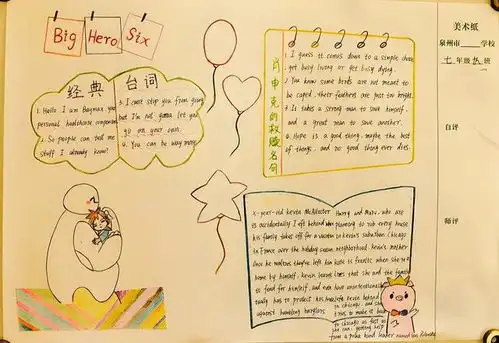 Big Hero Six
经典 台词
1. Hello. I am Baymax your
personal healthcare companion
2. So people can tell me
stuff I already know!
3. I can't stop you from going
but I'm not gonna let you
go on your own.
4. You can be way more.
肖申克的救赎名句
1. I guess it comes down to a simple choice
get busy living or get busy dying.
2. You know some birds are not meant to
be caged, their feathers are just too bright.
3. It takes a strong man to save himself,
and a great man to save another.
4. Hope is a good thing, maybe the best
of things, and no good thing ever dies.
8-year-old Kevin McAllister
is accidentally left behind when
his family takes off for a vacation
in France over the holiday season
once he realizes they've left him
home by himself, Kevin learns
to fend for himself, and
has to protect his house
against bumbling burglars
Harry and Marv, who are
planning to rob every house
in Kevin's suburban Chicago
neighborhood Kevin's mother
Kate is frantic when she
that she and the family
have unintentionally
Kevin behind
in Chicago, and she
tries to make it back
to Chicago as fast as
she can, getting help
from a polka band leader named
美术纸
泉州市 学校
七年级 班
自评
师评